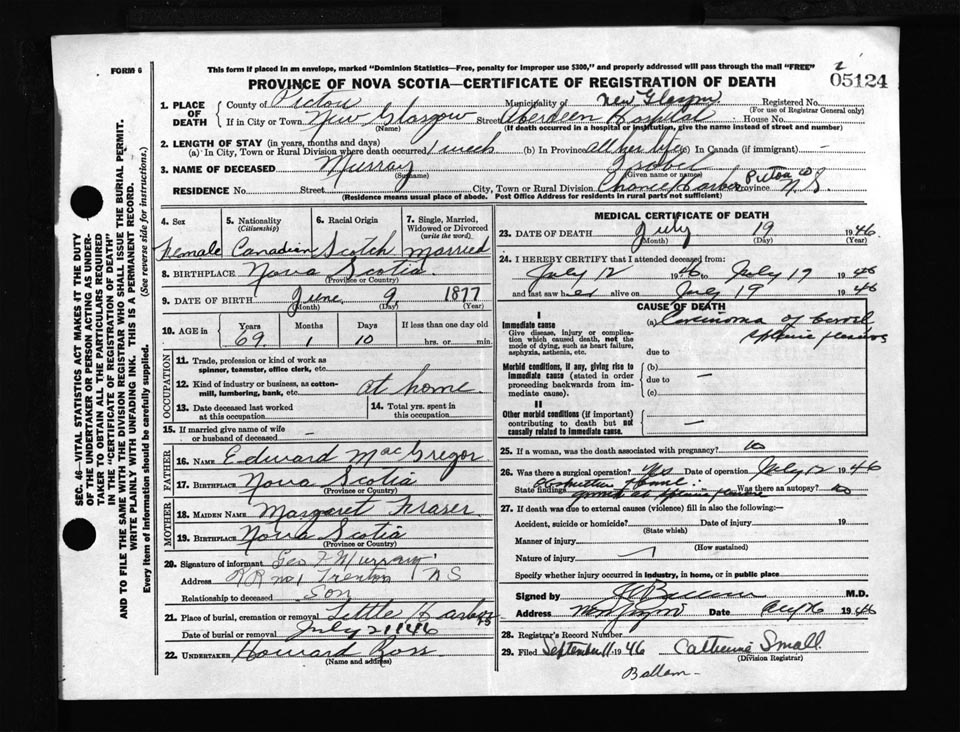 FORM 6
This form if placed in an envelope, marked "Dominion Statistics—Free, penalty for improper use $300," and properly addressed will pass through the mail "FREE"
2
05124
PROVINCE OF NOVA SCOTIA—CERTIFICATE OF REGISTRATION OF DEATH
1. PLACE OF DEATH County of Pictou Municipality of New Glasgow Registered No.
(For use of Registrar General only)
If in City or Town New Glasgow Street Aberdeen Hospital House No.
(Name) (If death occurred in a hospital or institution, give the name instead of street and number)
2. LENGTH OF STAY (in years, months and days)
(a) In City, Town or Rural Division where death occurred 1 week (b) In Province all her life (c) In Canada (if immigrant) —
3. NAME OF DECEASED Murray Isobel
(Surname) (Given name or names)
RESIDENCE No. Street City, Town or Rural Division Chance Harbor Pictou Co Province N. S.
(Residence means usual place of abode. Post Office Address for residents in rural parts not sufficient)
SEC. 46—VITAL STATISTICS ACT MAKES IT THE DUTY
OF THE UNDERTAKER OR PERSON ACTING AS UNDER-
TAKER TO OBTAIN ALL THE PARTICULARS REQUIRED
IN THE "CERTIFICATE OF REGISTRATION OF DEATH"
AND TO FILE THE SAME WITH THE DIVISION REGISTRAR WHO SHALL ISSUE THE BURIAL PERMIT.
WRITE PLAINLY WITH UNFADING INK. THIS IS A PERMANENT RECORD.
Every item of Information should be carefully supplied. (See reverse side for instructions.)
4. Sex 5. Nationality 6. Racial Origin 7. Single, Married,
(Citizenship) Widowed or Divorced
(write the word)
Female Canadian Scotch Married
8. BIRTHPLACE Nova Scotia
(Province or Country)
9. DATE OF BIRTH June 9 1877
(Month) (Day) (Year)
10. AGE in Years Months Days If less than one day old
69 1 10 hrs. or min.
OCCUPATION
11. Trade, profession or kind of work as
spinner, teamster, office clerk, etc.
12. Kind of industry or business, as cotton-
mill, lumbering, bank, etc. at home
13. Date deceased last worked
at this occupation
14. Total yrs. spent in
this occupation
15. If married give name of wife
or husband of deceased —
FATHER
16. NAME Edward MacGregor
17. BIRTHPLACE Nova Scotia
(Province or Country)
MOTHER
18. MAIDEN NAME Margaret Fraser
19. BIRTHPLACE Nova Scotia
(Province or Country)
20. Signature of informant Geo F Murray
Address RR no1 Trenton NS
Relationship to deceased Son
21. Place of burial, cremation or removal Little Harbor NS
Date of burial or removal July 21/46
22. UNDERTAKER Howard Ross
(Name and address)
MEDICAL CERTIFICATE OF DEATH
23. DATE OF DEATH July 19 1946
(Month) (Day) (Year)
24. I HEREBY CERTIFY that I attended deceased from:
July 12 1946 to July 19 1946
and last saw her alive on July 19 1946
CAUSE OF DEATH
I
Immediate cause
Give disease, injury or complica-
tion which caused death, not the
mode of dying, such as heart failure,
asphyxia, asthenia, etc.
(a) Carcinoma of bowel
splenic flexure
due to
Morbid conditions, if any, giving rise to
immediate cause (stated in order
proceeding backwards from im-
mediate cause).
(b)
due to —
(c)
II
Other morbid conditions (if important)
contributing to death but not
causally related to immediate cause.
—
25. If a woman, was the death associated with pregnancy? no
26. Was there a surgical operation? Yes Date of operation July 12 1946
State findings Obstructive bowel growth at splenic flexure Was there an autopsy? no
27. If death was due to external causes (violence) fill in also the following:—
Accident, suicide or homicide? Date of injury 19
(State which)
Manner of injury
(How sustained)
Nature of injury
Specify whether injury occurred in industry, in home, or in public place
Signed by M.D.
Address New Glasgow Date Aug 26 1946
28. Registrar's Record Number
29. Filed September 11 1946 Catherine Small
(Division Registrar)
Ballem